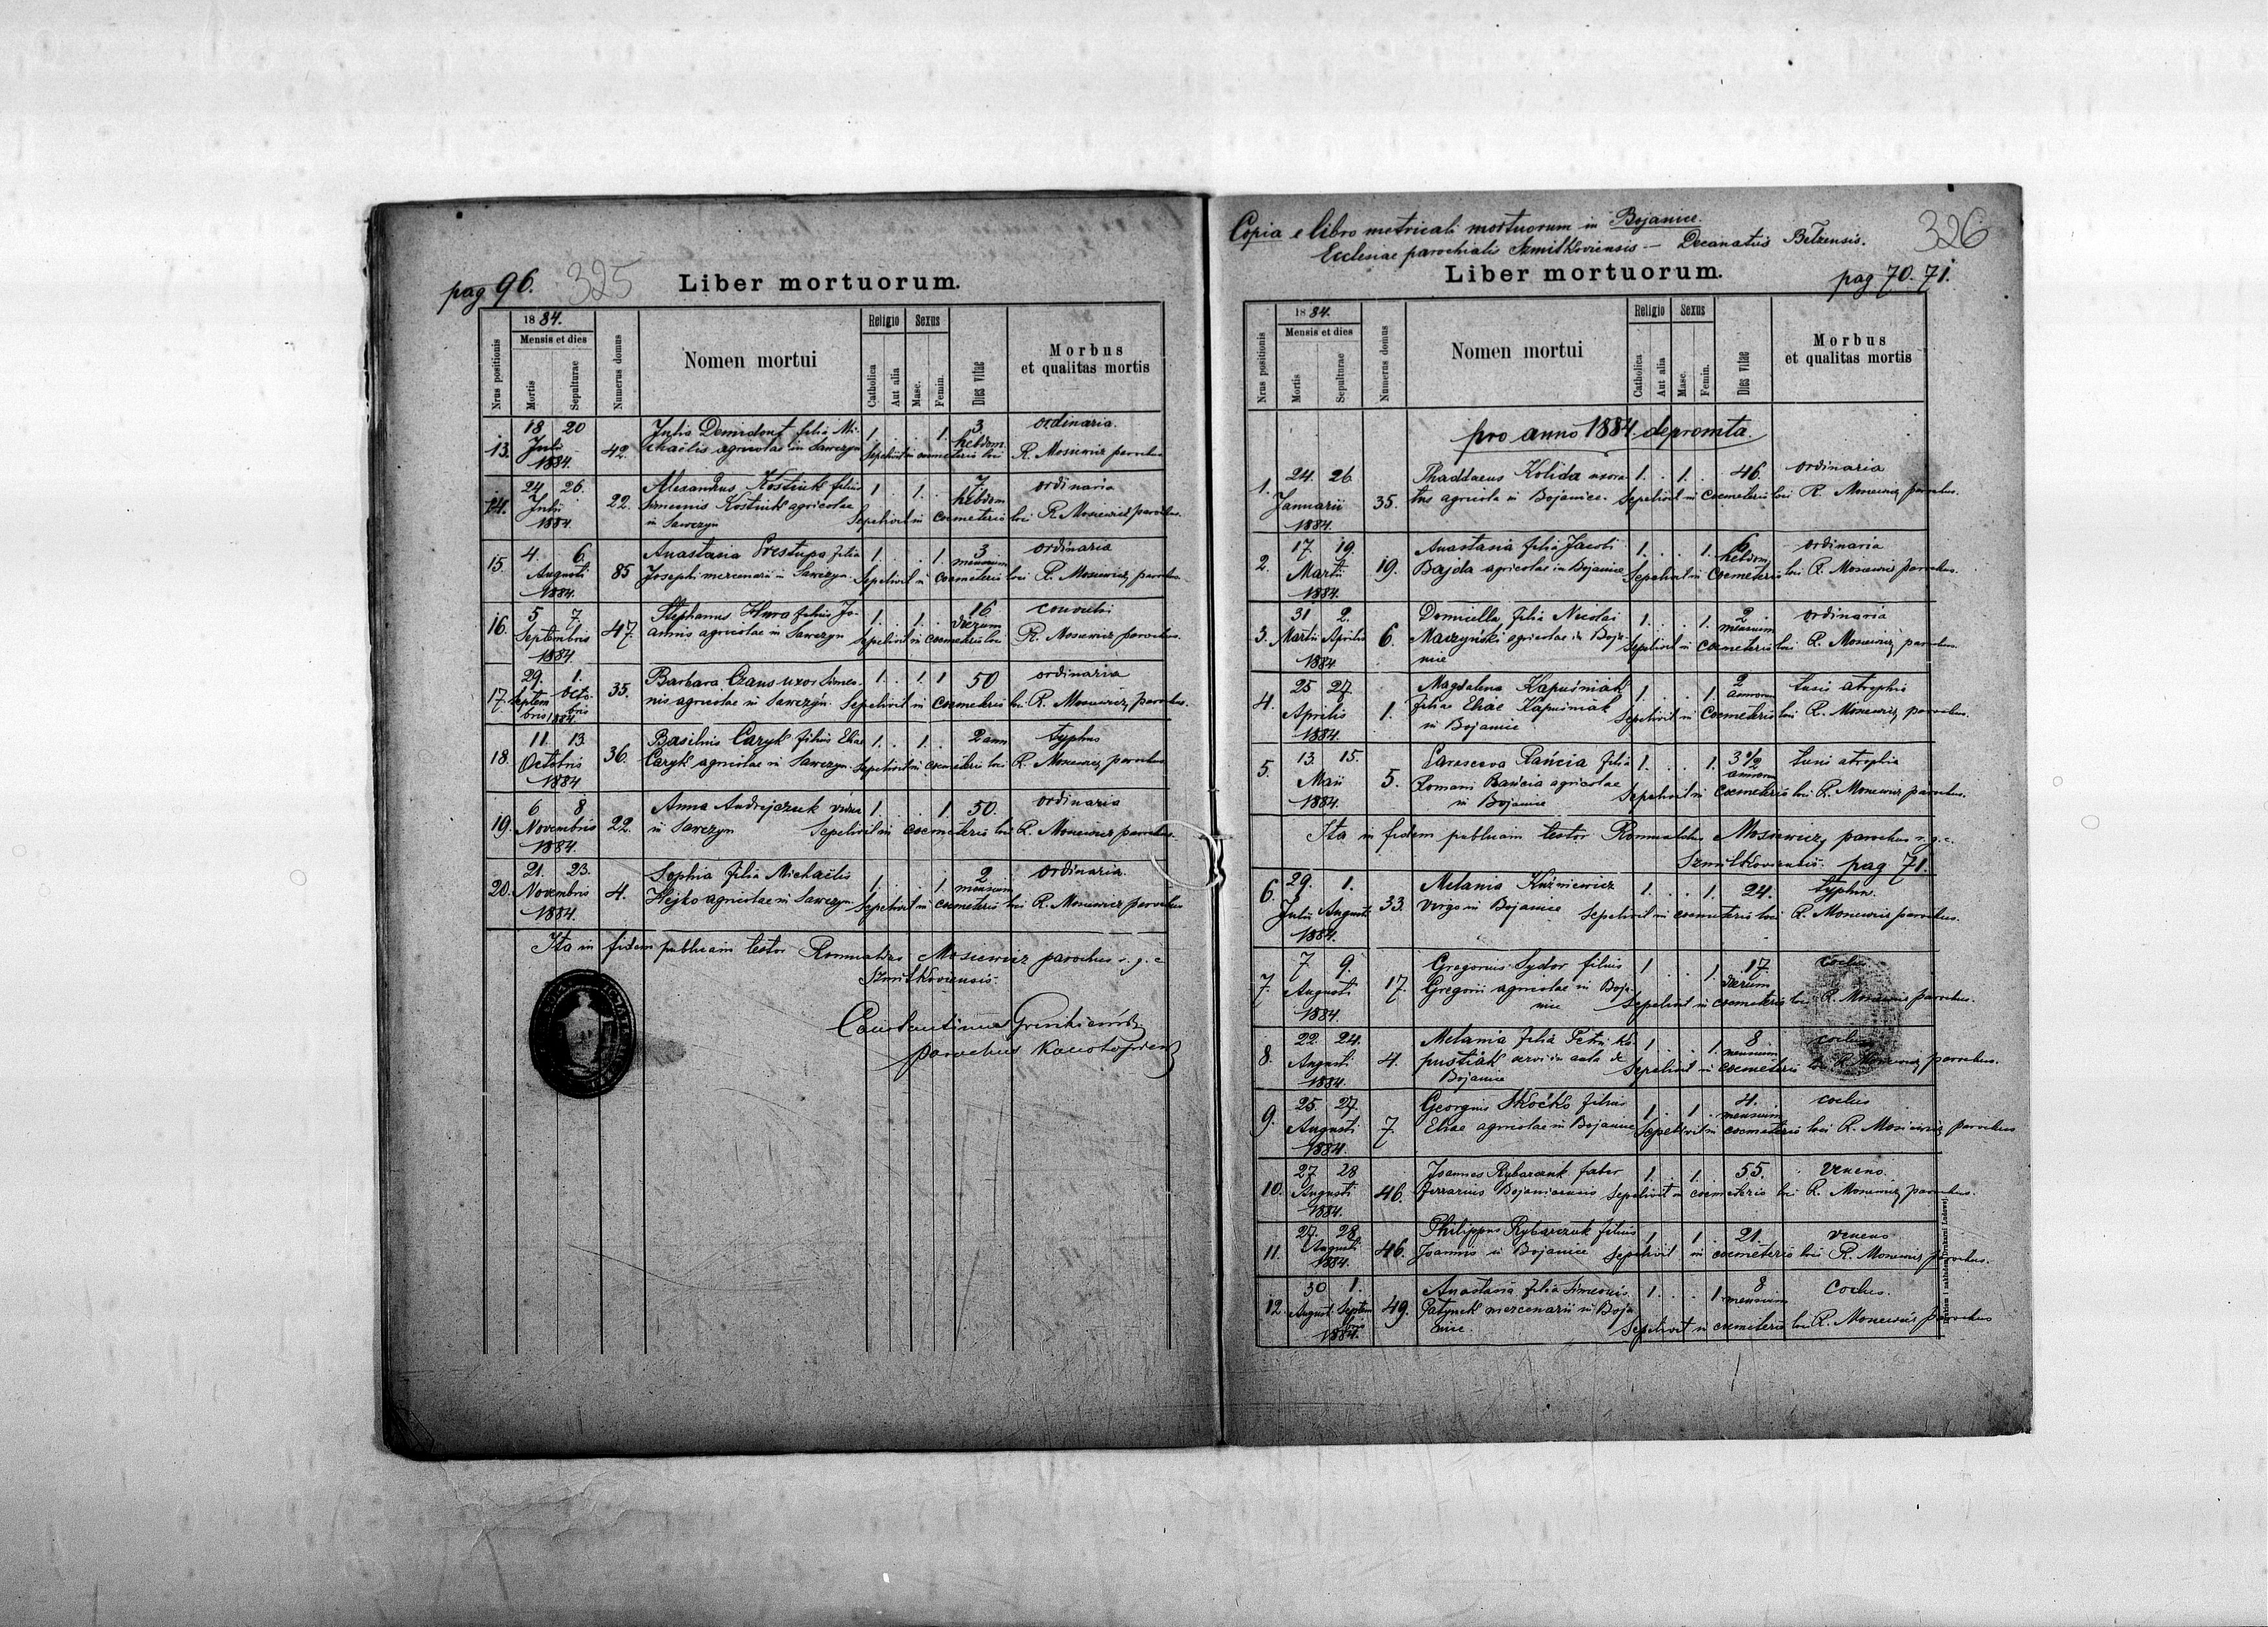 pag 96. 325
Liber mortuorum.
Nrus positionis
1884.
Mensis et dies
Mortis
Sepulturae
Numerus domus
Nomen mortui
Religio
Catholica
Aut alia
Sexus
Masc.
Femin.
Dies vitae
Morbus
et qualitas mortis
13. 18 20 Julii 1884. 42. Julia filia Mi- 1. . . 1. 3 hebdom. ordinaria.
chaëlis agricolae in Sawczyn Sepelivit in coemeterio loci R. Mosiewicz parochus
14. 24. 26. Julii 1884. 22. Alexandrus Kostiuk filius 1. . 1. . 7. hebdom ordinaria
Simeonis Kostiuk agricolae
in Sawczyn Sepelivit in coemeterio loci R. Mosiewicz parochus.
15. 4. 6. Augusti 1884. 85 Anastasia Prestupa filia 1. . . 1. 3 mensium ordinaria
Josephi mercenarii in Sawczyn. Sepelivit in coemeterio loci R. Mosiewicz parochus.
16. 5 7. Septembris 1884. 47. Stephanus filius Jo- 1. . 1. . 16 dierum
annis agricolae in Sawczyn Sepelivit in coemeterio loci R. Mosiewicz parochus.
17. 29. 1. Septembris octobris 1884. 35. Barbara uxor Simeo- 1. . 1. 1 50 ordinaria
nis agricolae in Sawczyn. Sepelivit in coemeterio loci R. Mosiewicz parochus.
18. 11. 13. Octobris 1884 36. Basilius Caryk filius Eliae 1. . 1. . 2 ann typhus
Caryk agricolae in Sawczyn. Sepelivit in coemeterio loci R. Mosiewicz parochus
19. 6 8 Novembris 1884. 22. Anna Andrejczuk vidua 1. . . 1. 50. ordinaria
in Sawczyn Sepelivit in coemeterio loci R. Mosiewicz parochus.
20. 21. 23. Novembris 1884. 4. Sophia filia Michaëlis 1. . . 1. 2 mensium ordinaria.
Hejko agricolae in Sawczyn. Sepelivit in coemeterio loci R. Mosiewicz parochus
Ita in fidem publicam testor Romualdus Mosiewicz parochus r. g. c
Szmitkoviensis.
Constantinus
parochus
Copia e libro metricali mortuorum in Bojanice.
Ecclesiae parochialis Szmitkoviensis — Decanatûs Belzensis.
326
Liber mortuorum.
pag 70. 71.
Nrus positionis
1884.
Mensis et dies
Mortis
Sepulturae
Numerus domus
Nomen mortui
Religio
Catholica
Aut alia
Sexus
Masc.
Femin.
Dies vitae
Morbus
et qualitas mortis
pro anno 1884. depromta.
1. 24. 26 Januarii 1884. 35. Thaddaeus Kolida uxora 1. . 1. . 46. ordinaria
tus agricola in Bojanice. Sepelivit in Coemeterio loci R. Mosiewicz parochus.
2. 17. 19. Martii 1884. 19. Anastasia filia Jacobi 1. . . 1. 6 hebdom ordinaria
Bajda agricolae in Bojanice Sepelivit in Coemeterio loci R. Mosiewicz parochus.
3. 31 2. Martii Aprilis 1884 6. Domicella filia Nicolai 1. . . 1. 2 mensium ordinaria
Maczyński agricolae in Boja-
nice Sepelivit in Coemeterio loci R. Mosiewicz parochus.
4. 25 27. Aprilis 1884. 1. Magdalena Kapuśniak 1. . . 1. 2 annorum tusis atrophia
filia Eliae Kapuśniak
in Bojanice Sepelivit in Coemeterio loci R. Mosiewicz parochus.
5. 13. 15. Maii 1884. 5. Parasceva filia 1. . . 1. 3 1/2 annorum tusis atrophia
Romani agricolae
in Bojanice Sepelivit in Coemeterio loci R. Mosiewicz parochus.
Ita in fidem publicam testor Romualdus Mosiewicz parochus r. g. c.
Szmitkoviensis. pag 71.
6. 29. 1. Julii Augusti 1884. 33. Melania Kuźniewicz 1. . . 1. 24. typhus.
virgo in Bojanice Sepelivit in coemeterio loci R. Mosiewicz parochus.
7. 7 9. Augusti 1884. 17. Gregorius Sydor filius 1 . . 1 17. dierum
Gregorii agricolae in Boja-
nice Sepelivit in coemeterio loci R. Mosiewicz parochus.
8. 22. 24. Augusti 1884. 4. Melania filia Petri Ka 1. . . 1. 8 mensium
pustiak servi in aula de
Bojanice Sepelivit in coemeterio loci R. Mosiewicz parochus.
9. 25. 27. Augusti 1884. 7. Georgius filius 1. . 1 . 4. mensium
Eliae agricolae in Bojanice Sepelivit in coemeterio loci R. Mosiewicz parochus
10. 27 28 Augusti 1884. 46. Joannes Rybarczuk faber 1. . 1. 55. veneno.
ferrarius Bojanicensis Sepelivit in coemeterio loci R. Mosiewicz parochus.
11. 27. 28. Augusti 1884. 46. Philippus Rybarczuk filius 1 1 . 21. veneno
Joannis in Bojanice Sepelivit in coemeterio loci R. Mosiewicz parochus.
12. 30 1. August. Septembris 1884. 49. Anastasia filia Simeonis 1. . . 1. 8 mensium
mercenarii in Boja
nice. Sepelivit in coemeterio loci R. Mosiewicz parochus